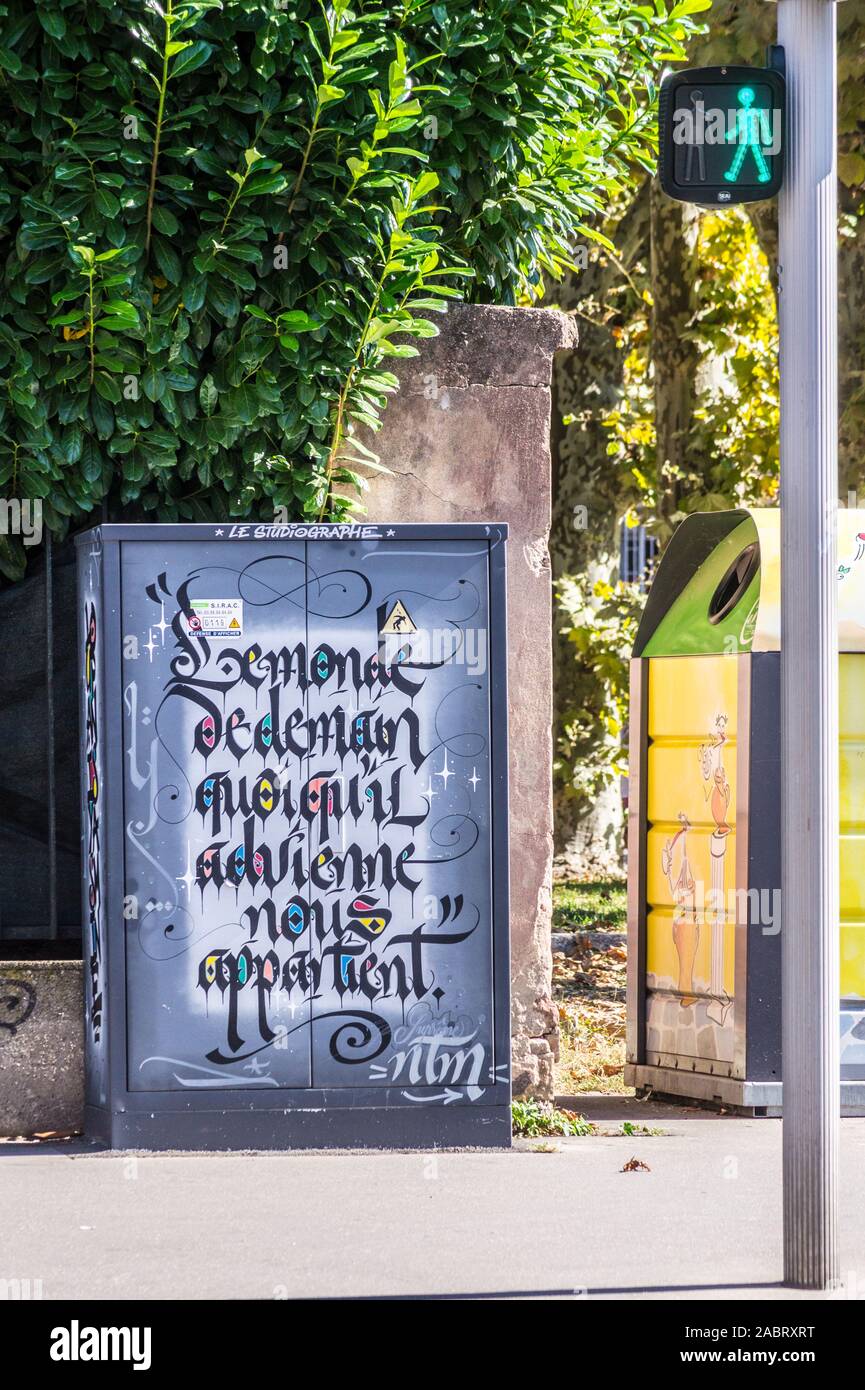 * LE STUDIOGRAPHE *
S.I.R.A.C.
DÉFENSE D'AFFICHER
"Le monde
de demain
quoi qu'il
advienne
nous
appartient."
ntm
alamy
Image ID: 2ABRXRT
www.alamy.com